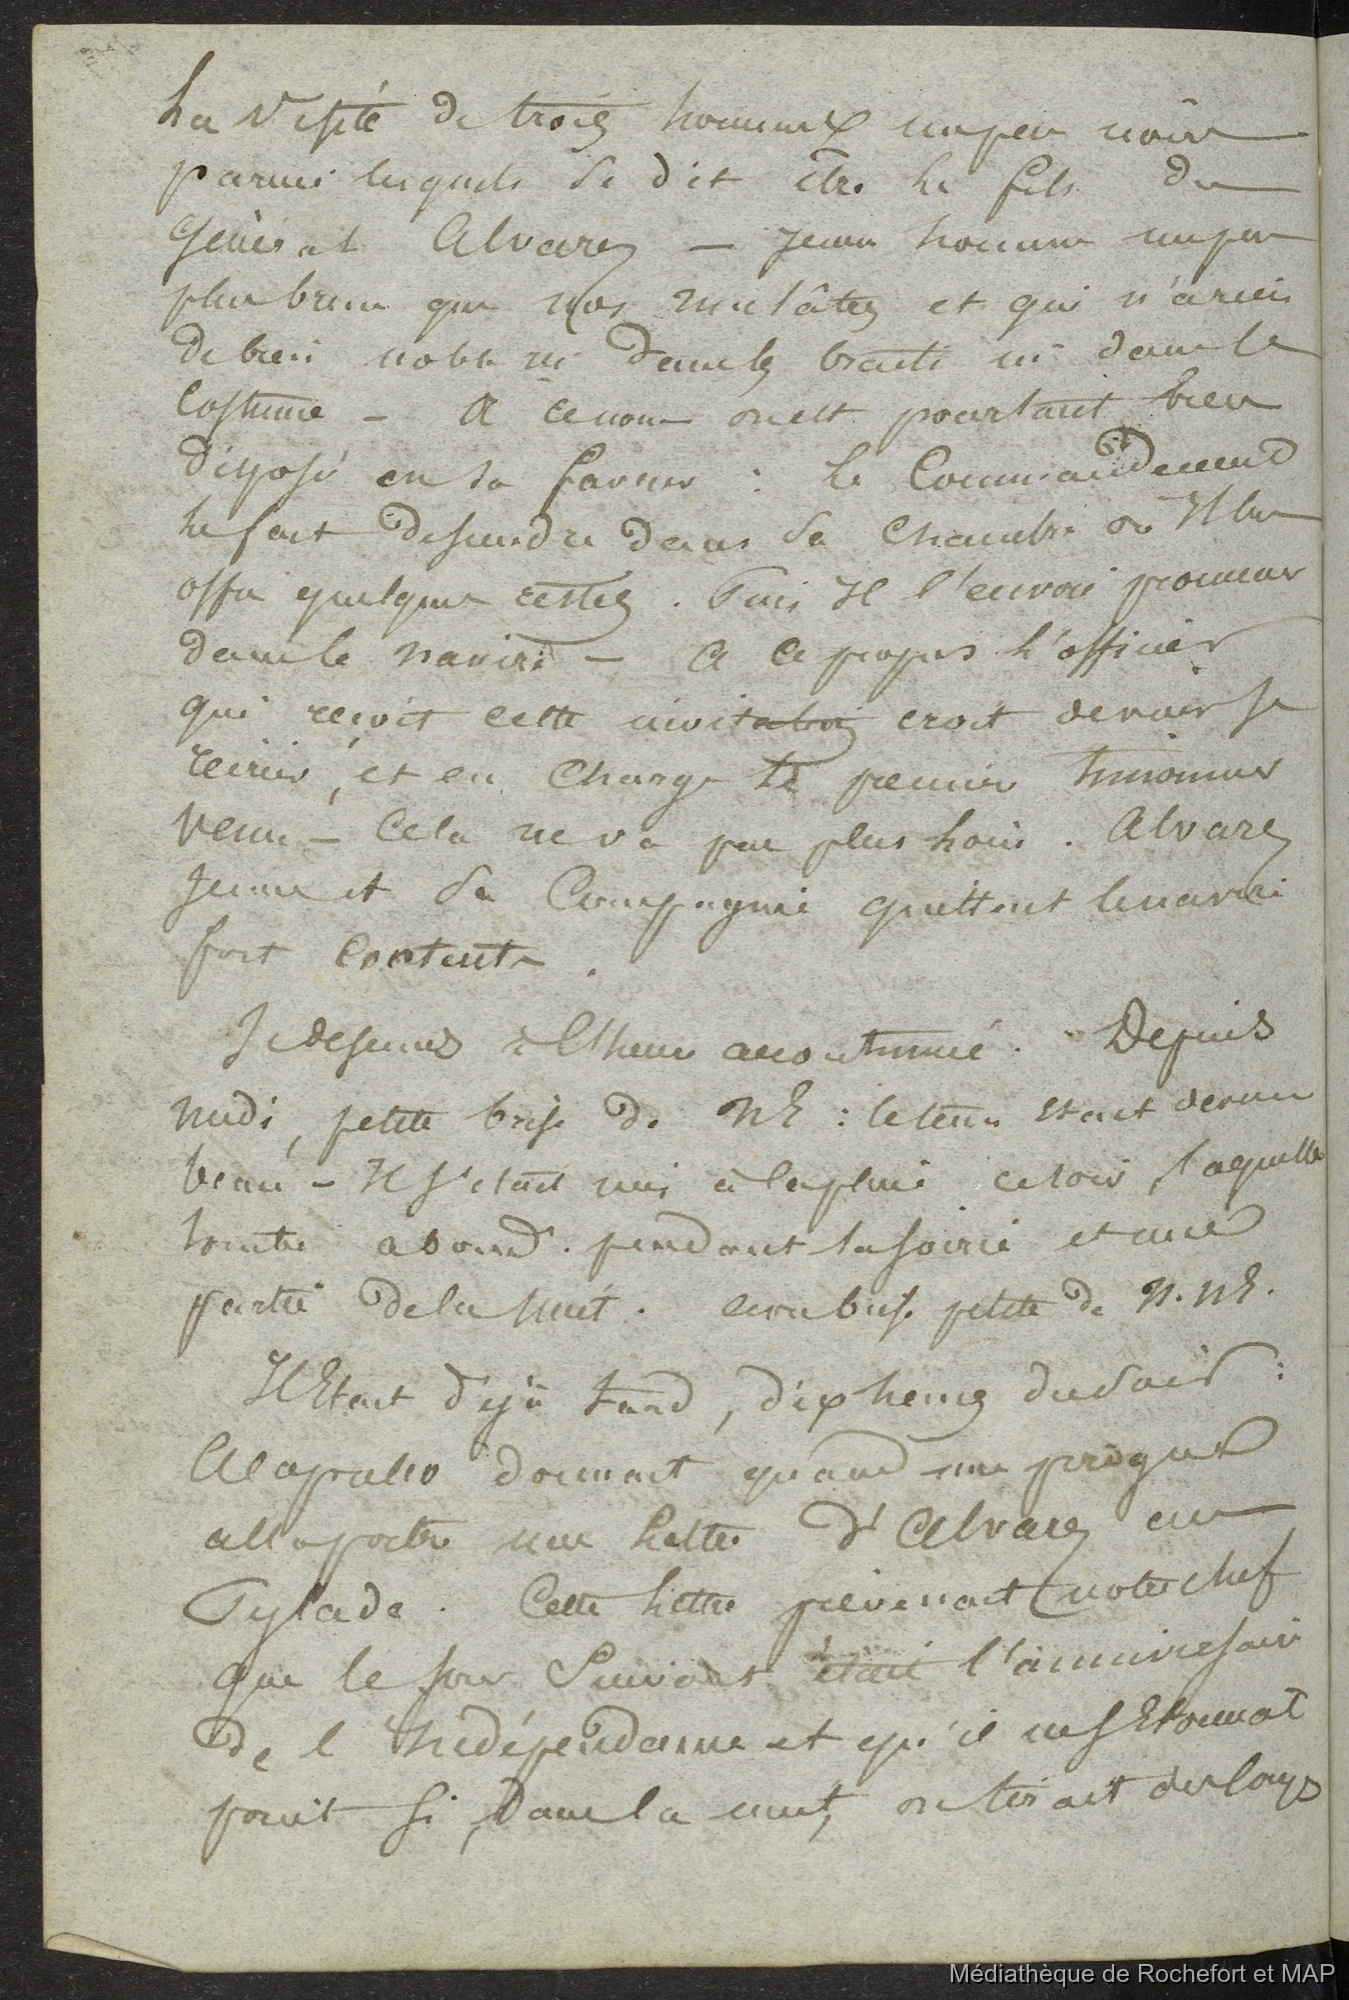 La visite de trois hommes un peu noirs
parmi lesquels se dit être le fils du
Général Alvarez — jeune homme un peu
plus brun que nos mulâtres et qui n'a rien
de bien noble ni dans les traits ni dans le
Costume — à ce nom on est pourtant bien
disposé en sa faveur : le Commandement
le fait descendre dans sa chambre où Il lui
offre quelques restes. Puis Il l'envoie promener
dans le navire — à ce propos l'officier
qui reçoit cette invitation croit devoir se
récrier, et en charge le premier timonnier
venu — Cela ne va pas plus loin. Alvarez
jeune et sa Compagnie quittent le navire
fort contents.
Je descends à l'heure accoutumée. Depuis
midi, petite brise de NE : le tems était devenu
beau — Il s'était mis à la pluie ce soir, laquelle
tombe abond. pendant la soirée et une
partie de la nuit. brise petite de N.NE.
Il Etait déjà tard, dix heures du soir :
Acapulco dormait quand une pirogue
alla porter une lettre d'Alvarez au
Pylade. Cette lettre prévenait notre chef
que le jour suivant était l'anniversaire
de l'Indépendance et qu'il ne s'Etonnat
point si, dans la nuit, on tirait des coups